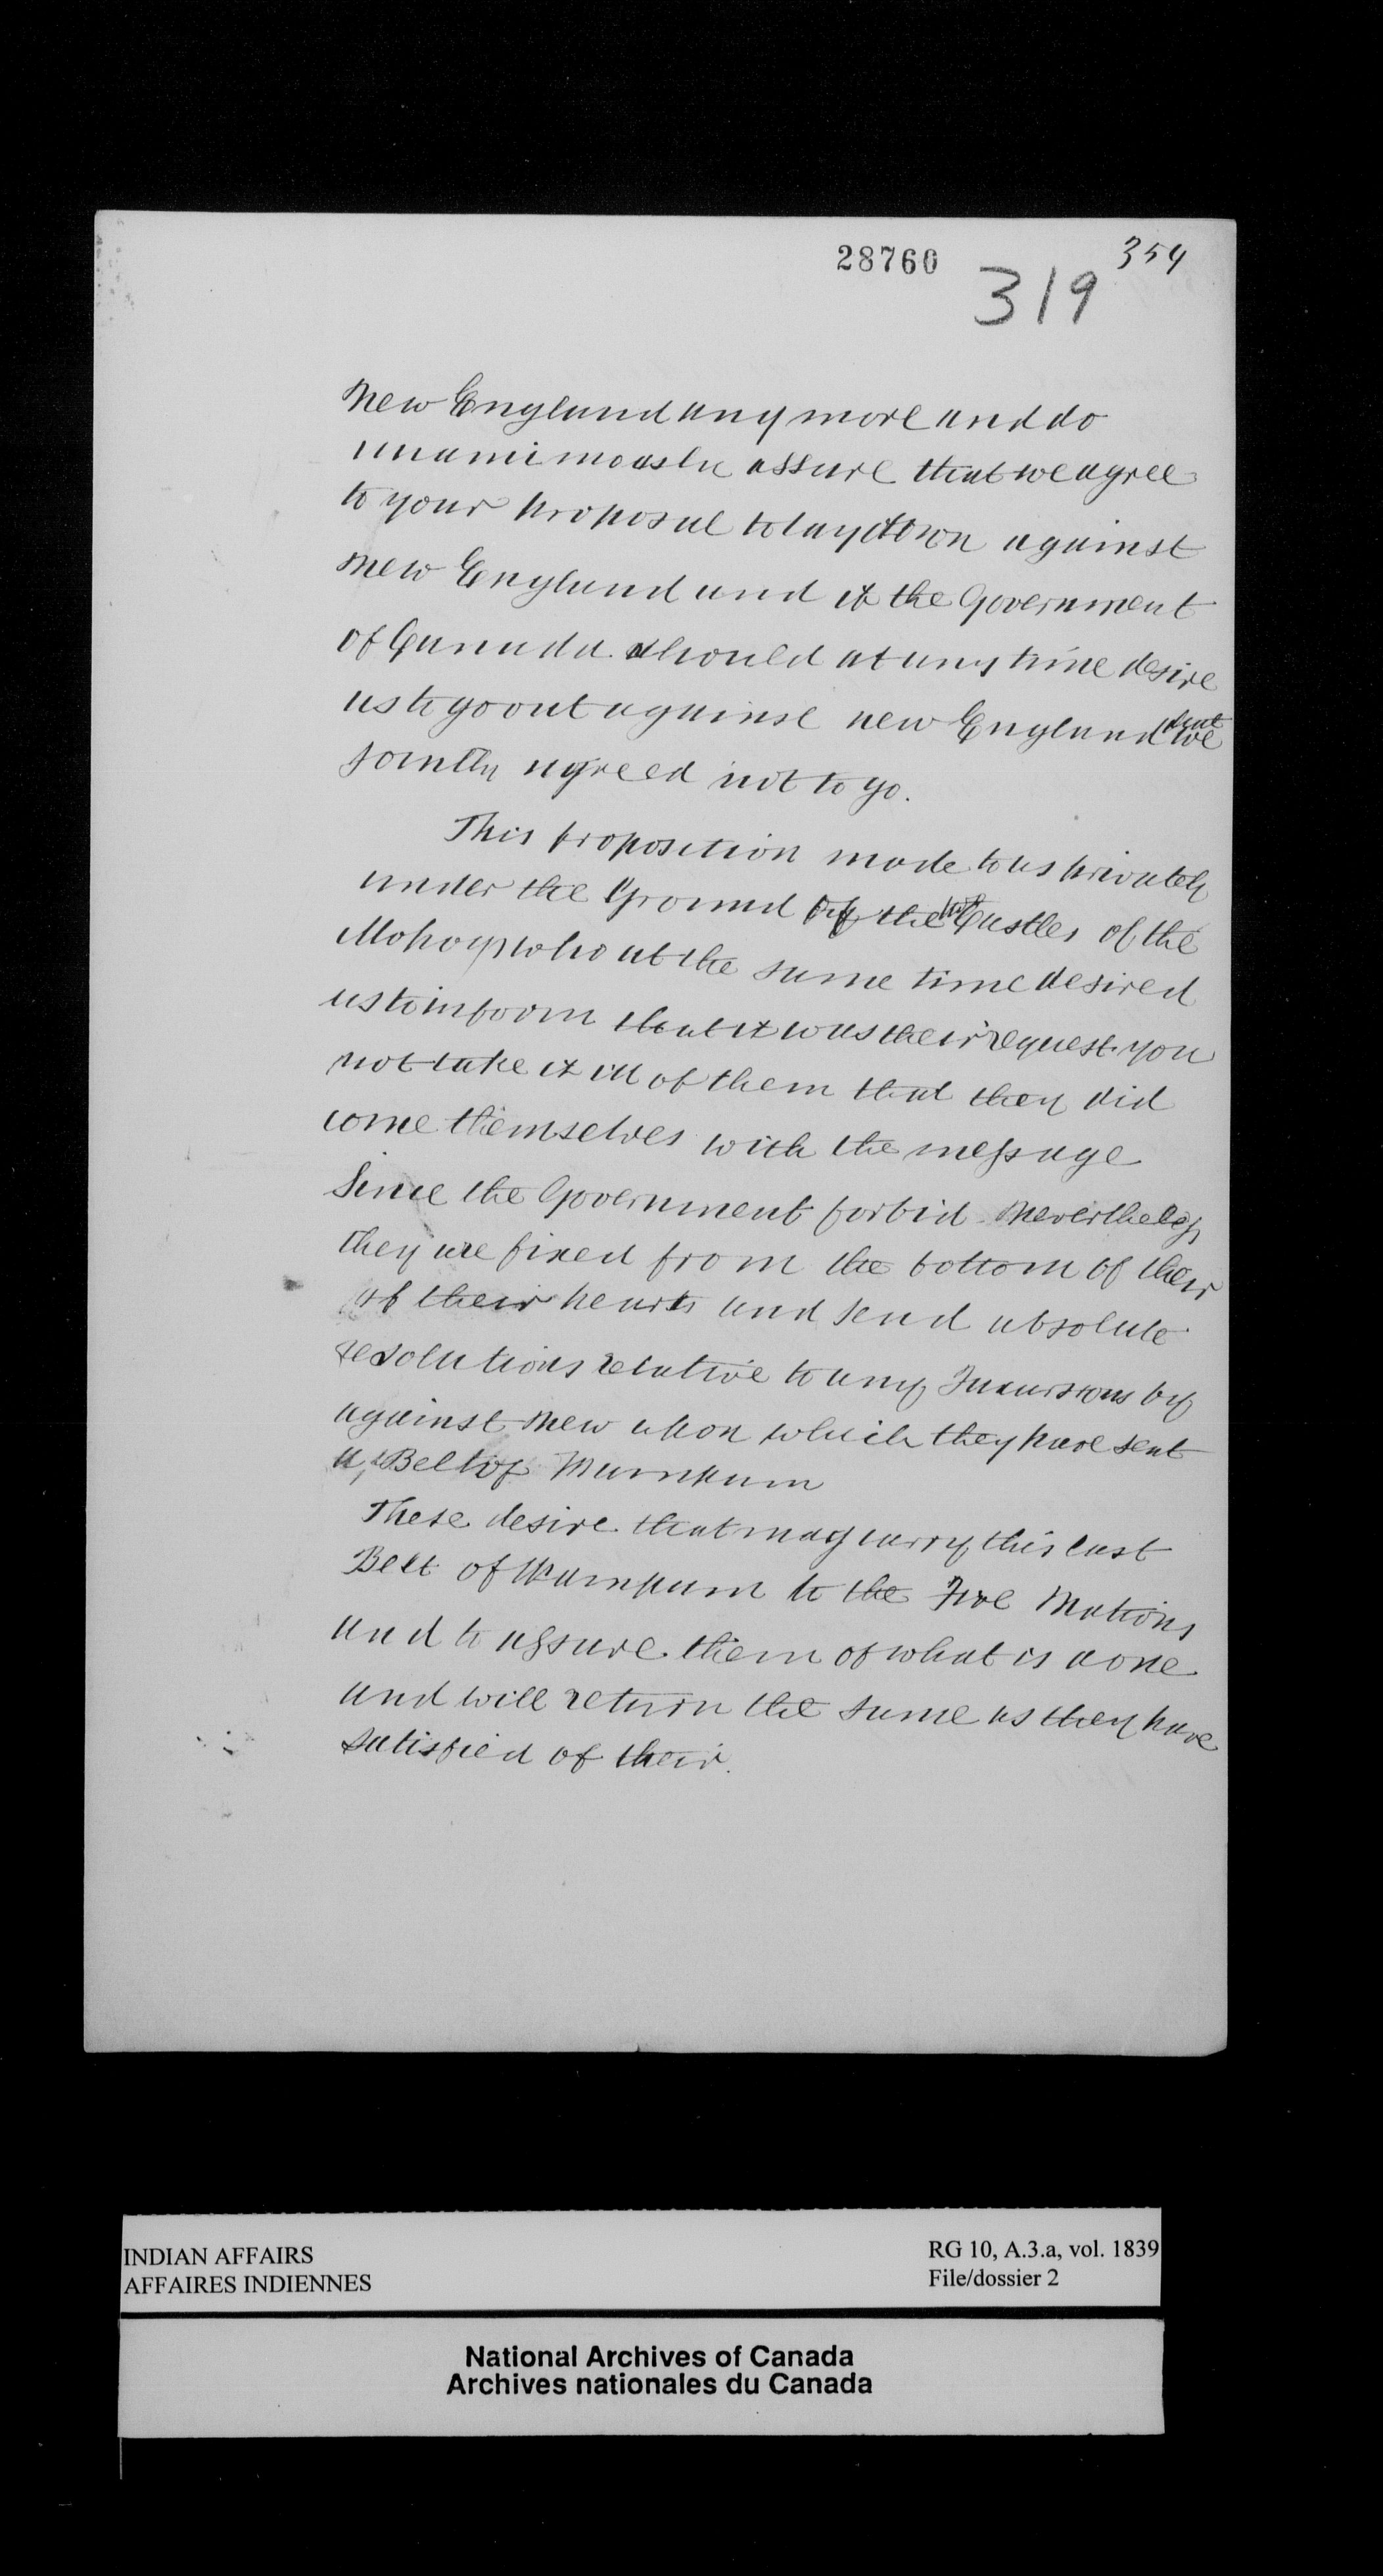 28760
354
319
New England any more and do
unanimously assure that we agree
to your proposal to lay down against
New England and if the Government
of Canada should at any time desire
us to go out against new England that we
Jointly agreed not to go.
This proposition made to us privately
under the Ground by the two Castles of the
Mohoqs who at the same time desired
us to inform that it was their request you
not take it ill of them that they did
come themselves with the message
Since the Government forbid Nevertheless
they are fixed from the bottom of their
of their hearts and send absolute
resolutions relative to any Incursions by
against New upon which they have sent
a Belt of Wampum
These desire that may carry this last
Belt of Wampum to the Five Nations
and to assure them of what is done
and will return the same as they have
satisfied of their.
INDIAN AFFAIRS
AFFAIRES INDIENNES
RG 10, A.3.a, vol. 1839
File/dossier 2
National Archives of Canada
Archives nationales du Canada